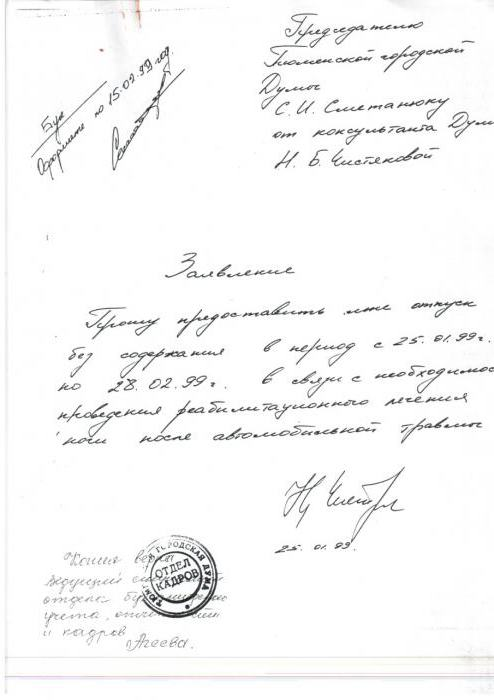 Председателю
Тюменской городской
Думы
С. И. Сметанюку
от консультанта Думы
Н. Б. Чистяковой
Бук
Оформите по 15.02.99 год.
Заявление
Прошу предоставить мне отпуск
без содержания в период с 25.01.99г.
по 28.02.99г. в связи с необходимос
проведения реабилитационного лечения
ноги после автомобильной травмы
25. 01. 99.
Копия верна
ведущий
отдела
учета,
и кадров
Агеева.
ГОРОДСКАЯ ДУМА
ОТДЕЛ
КАДРОВ